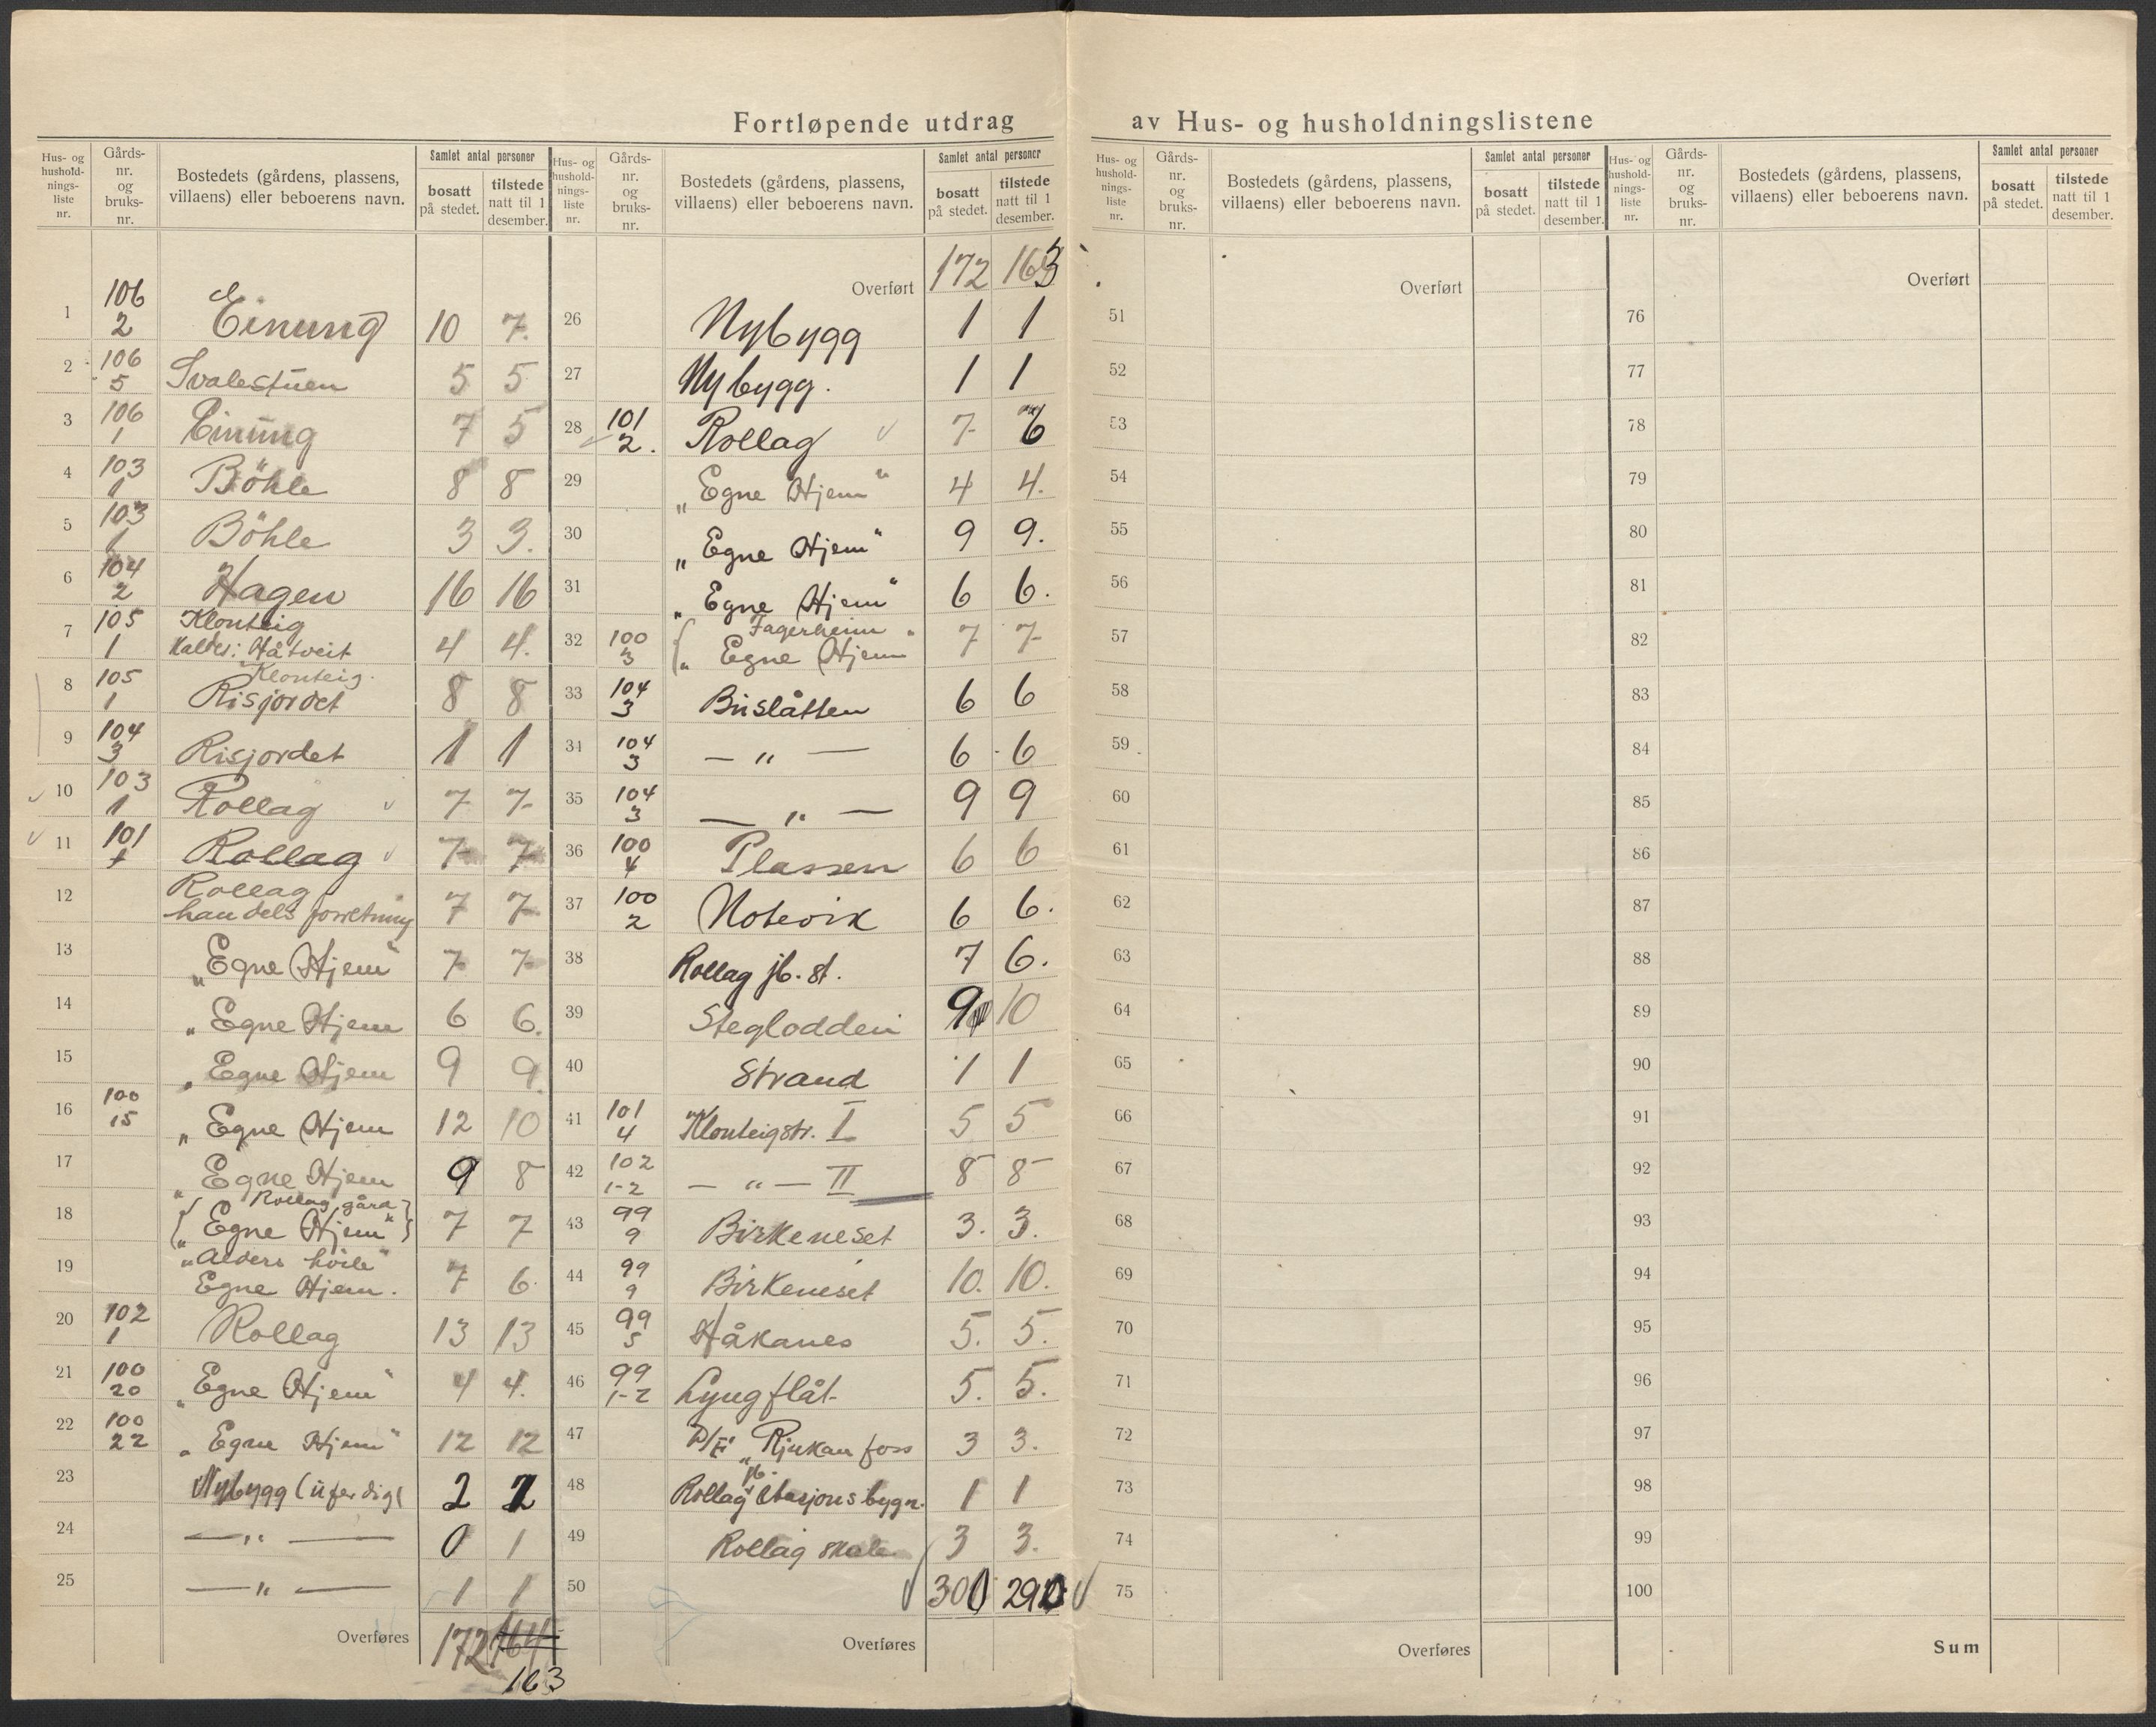 Fortløpende utdrag av Hus- og husholdningslistene
Hus- og hushold-nings-liste nr. | Gårds-nr. og bruks-nr. | Bostedets (gårdens, plassens, villaens) eller beboerens navn. | Samlet antal personer | bosatt på stedet. | tilstede natt til 1 desember.
1 | 106 2 | Einung | 10 | 7.
2 | 106 5 | Svalestuen | 5 | 5
3 | 106 1 | Einung | 7 | 5
4 | 103 1 | Böhle | 8 | 8
5 | 103 1 | Böhle | 3 | 3.
6 | 104 2 | Hagen | 16 | 16
7 | 105 1 | Klonteig
Kaldes: Håtveit | 4 | 4.
8 | 105 1 | Klonteig.
Risjordet | 8 | 8
9 | 104 3 | Risjordet | 1 | 1
10 | 103 1 | Rollag | 7 | 7
11 | 101 1 | Rollag | 7 | 7
12 | Rollag
handels forretning | 7 | 7
13 | „Egne Hjem" | 7 | 7
14 | „Egne Hjem | 6 | 6.
15 | „Egne Hjem | 9 | 9.
16 | 100 15 | „Egne Hjem | 12 | 10
17 | „Egne Hjem | 9 | 8
18 | Rollag gård
„Egne Hjem" | 7 | 7
19 | „Alders hvile"
Egne Hjem. | 7 | 6.
20 | 102 1 | Rollag | 13 | 13
21 | 100 20 | „Egne Hjem" | 4 | 4.
22 | 100 22 | „Egne Hjem" | 12 | 12
23 | Nybygg (uferdig( | 2 | 2
24 | — „ — | 0 | 1
25 | — „ — | 1 | 1
Overføres | 172 | 164
163
Hus- og hushold-nings-liste nr. | Gårds-nr. og bruks-nr. | Bostedets (gårdens, plassens, villaens) eller beboerens navn. | Samlet antal personer | bosatt på stedet. | tilstede natt til 1 desember.
Overført | 172 | 163
26 | Nybygg | 1 | 1
27 | Nybygg. | 1 | 1
28 | 101 2. | Rollag | 7 | 6
29 | „Egne Hjem" | 4 | 4.
30 | „Egne Hjem" | 9 | 9.
31 | „Egne Hjem" | 6 | 6.
32 | 100 3 | Fagerheim
„Egne Hjem" | 7 | 7
33 | 104 3 | Buslåtten | 6 | 6
34 | 104 3 | — „ — | 6 | 6
35 | 104 3 | — „ — | 9 | 9
36 | 100 4 | Plassen | 6 | 6
37 | 100 2 | Notevik | 6 | 6.
38 | Rollag jb. st. | 7 | 6.
39 | Steglodden | 9 | 10
40 | Strand | 1 | 1
41 | 101 4 | Klonteigstr. I | 5 | 5
42 | 102 1-2 | — „ — II | 8 | 8
43 | 99 9 | Birkeneset | 3. | 3.
44 | 99 9 | Birkeneset | 10. | 10.
45 | 99 5 | Håkanes | 5. | 5.
46 | 99 1-2 | Lyngflåt | 5. | 5.
47 | D/F „Rjukanfoss | 3 | 3.
48 | Rollag jb. stasjonsbygn. | 1 | 1
49 | Rollag skole | 3 | 3.
50 | 300 | 290
Overføres
Hus- og hushold-nings-liste nr. | Gårds-nr. og bruks-nr. | Bostedets (gårdens, plassens, villaens) eller beboerens navn. | Samlet antal personer | bosatt på stedet. | tilstede natt til 1 desember.
Overført
51
52
53
54
55
56
57
58
59
60
61
62
63
64
65
66
67
68
69
70
71
72
73
74
75
Overføres
Hus- og hushold-nings-liste nr. | Gårds-nr. og bruks-nr. | Bostedets (gårdens, plassens, villaens) eller beboerens navn. | Samlet antal personer | bosatt på stedet. | tilstede natt til 1 desember.
Overført
76
77
78
79
80
81
82
83
84
85
86
87
88
89
90
91
92
93
94
95
96
97
98
99
100
Sum